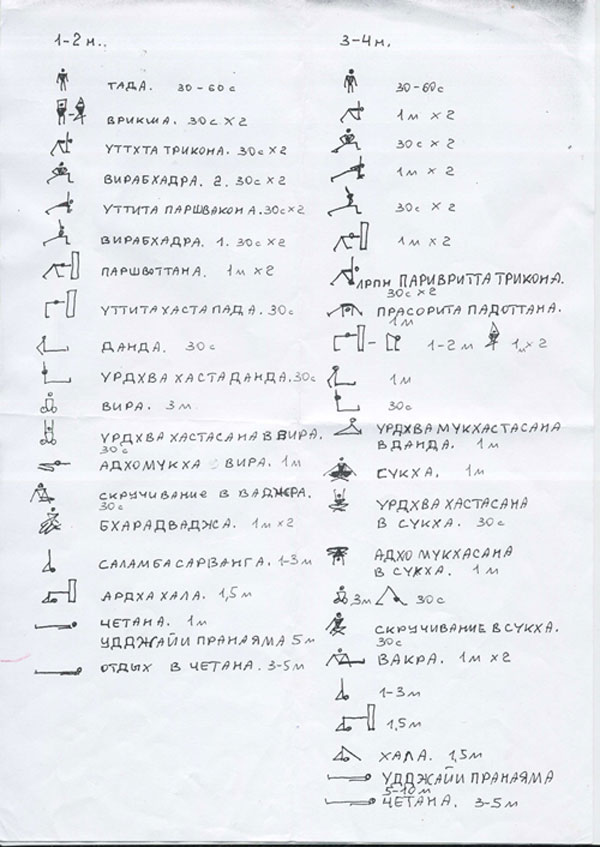 1-2 н..
ТАДА. 30-60 с
ВРИКША. 30 с х 2
УТТХТА ТРИКОНА. 30 с х 2
ВИРАБХАДРА. 2. 30 с х 2
УТТИТА ПАРШВАКОНА. 30 с х 2
ВИРАБХАДРА. 1. 30 с х 2
ПАРШВОТТАНА. 1 м х 2
УТТИТА ХАСТА ПАДА. 30 с
ДАНДА. 30 с
УРДХВА ХАСТА ДАНДА. 30 с
ВИРА. 3 м
УРДХВА ХАСТАСАНА В ВИРА.
30 с
АДХОМУКХА ВИРА. 1 м
СКРУЧИВАНИЕ В ВАДЖРА.
30 с
БХАРАДВАДЖА. 1 м х 2
САЛАМБА САРВАНГА. 1-3 м
АРДХА ХАЛА. 1,5 м
ЧЕТАНА. 1 м
УДДЖАЙИ ПРАНАЯМА 5 м
ОТДЫХ В ЧЕТАНА. 3-5 м
3-4 н.
30-60 с
1 м х 2
30 с х 2
1 м х 2
30 с х 2
1 м х 2
ПАРИВРИТТА ТРИКОНА.
30 с х 2
ПРАСОРИТА ПАДОТТАНА.
1 м
1-2 м 1 м х 2
1 м
30 с
УРДХВА МУКХАСТАСАНА
В ДАНДА. 1 м
СУКХА. 1 м
УРДХВА ХАСТАСАНА
В СУКХА. 30 с
АДХО МУКХАСАНА
В СУКХА. 1 м
3 м 30 с
СКРУЧИВАНИЕ В СУКХА.
30 с
ВАКРА. 1 м х 2
1-3 м
1,5 м
ХАЛА. 1,5 м
УДДЖАЙИ ПРАНАЯМА
5-10 м
ЧЕТАНА. 3-5 м